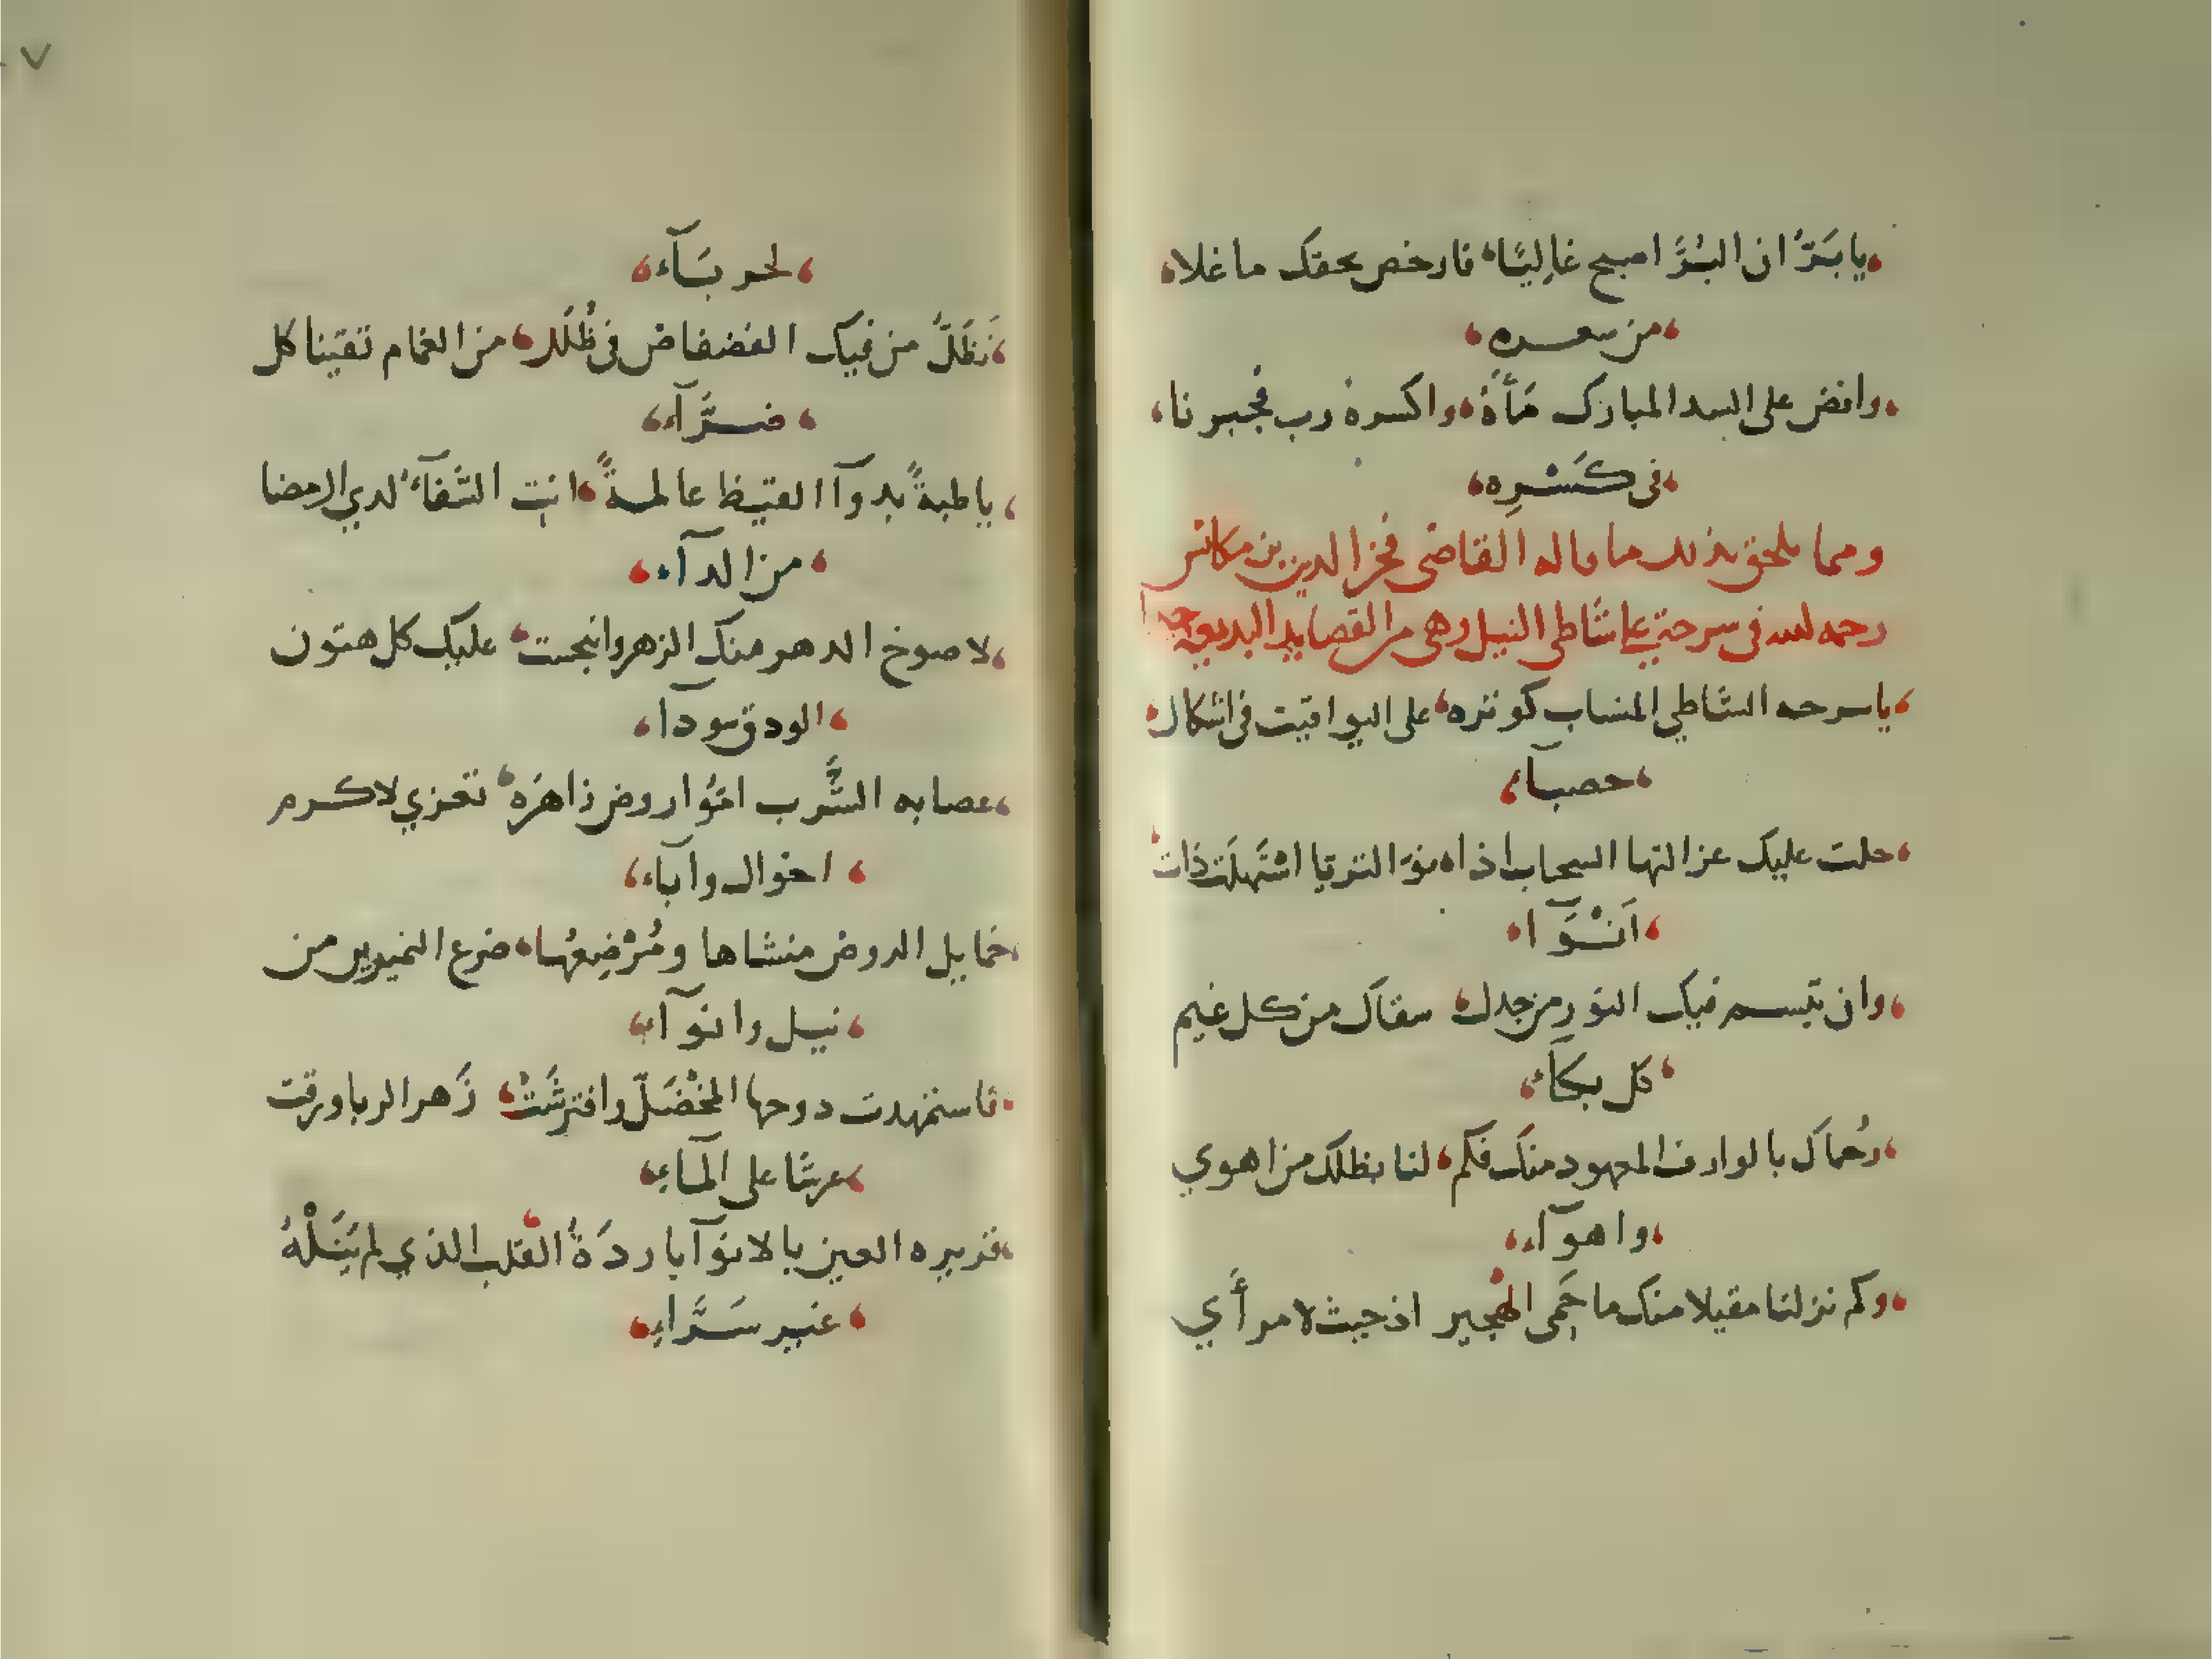 يا بَرُّ ان البُرَّ اصبح غالِيًا فارخص بحقك ما غلا
من سعره
وافض على السد المبارك مَأَهُ واكسره رب فجبرنا
فى كَسْرِه
ومما يلحق بذلك ما قاله القاضى فخر الدين بن مكانس
رحمه الله فى سرحة على شاطى النيل وهى من القصايد البديعة
يا سرحه الشاطي المنساب كوثره على اليواقيت فى اشكال
حصبآء
حلت عليك عزاليها السحاب اذا نوَ الثريا استهلت ذات
اَنْوَآء
وان تبسم فيك النور من جدل سقاك من كل غيم
كل بكآء
رُحماك بالوارف المعهود منك فكم لنا بظلك من اهوي
واهوآء
وكم نزلنا مقيلا منك ما حَمِى الهجير اذ جيت لامرأَي
لحربَآء
نَظَلُّ من فيك الفضفاض فى ظُلَلٍ من الغمام تقينا كل
ضرَّآء
يا طبةً بدوآ القيظ عالمةً انت الشفآءُ لدي الرمضا
من الدآء
لا صوخ الدهر منك الزهر وانبجست عليك كل هتون
الودق سودآ
عصابه الشَّرب امّوُا روض زاهره تعزي لاكرم
اخوال وآبآء
خمايل الروض منشاها ومُرْضِعُها ضرع النميرين من
نيل وانوآء
فاستمهدت دوحها المخْضَلّ وافترشَتْ زَهر الربا ورقت
عرشًا على المآءِ
قريره العين بالانوآ باردَةُ القلب الذي لم يَنَلْهُ
غير سَرَّاءِ